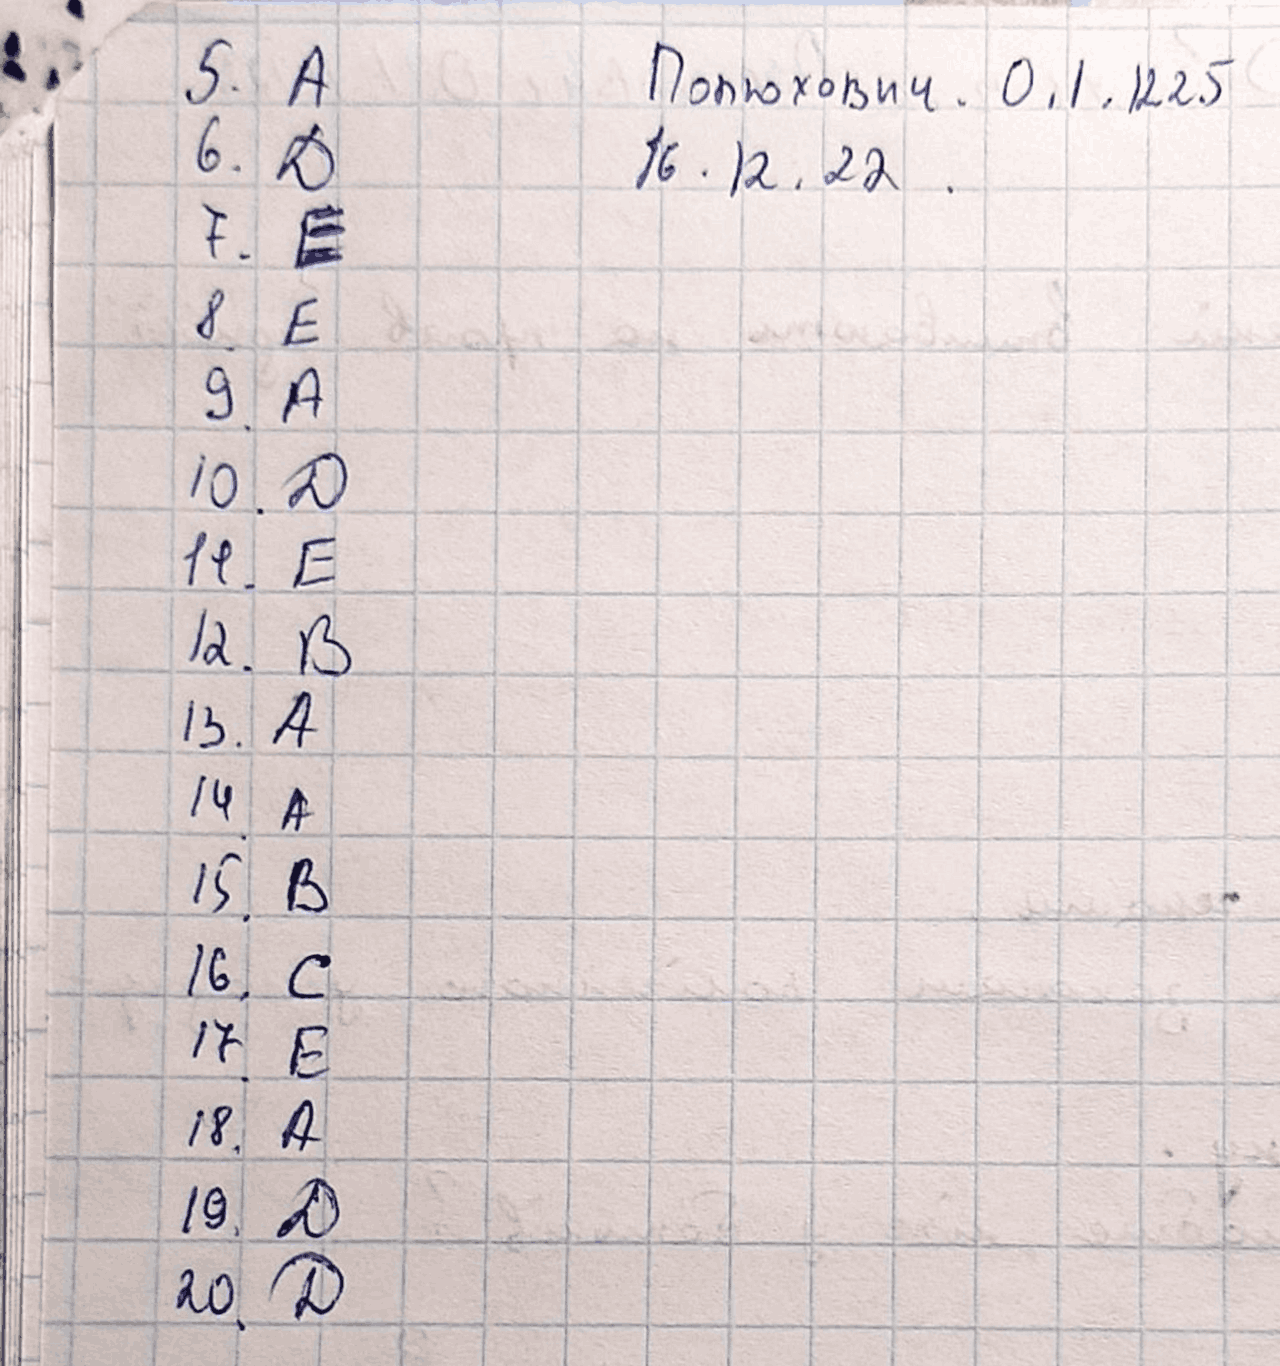 5. A
6. D
7. E
8 E
9. A
10. D
11. E
12. B
13. A
14. A
15. B
16. C
17. E
18. A
19. D
20. D
Полюхович. О.І. 1225
16.12.22.